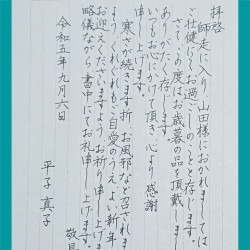 拝啓
師走に入り、山田様におかれましては
ご壮健にてお過ごしのことと存じます。
さて、この度はお歳暮の品を頂戴し
ありがたく存じます。
いつもお心がけて頂き、心より感謝
申し上げます。
寒さが続きます折、お風邪など召されま
せんよう、くれぐれもご自愛のうえ、よい新年を
お迎えくださいますようお祈り申し上げます。
略儀ながら書中にてお礼申し上げます。
敬具
令和五年九月六日
平子 真子